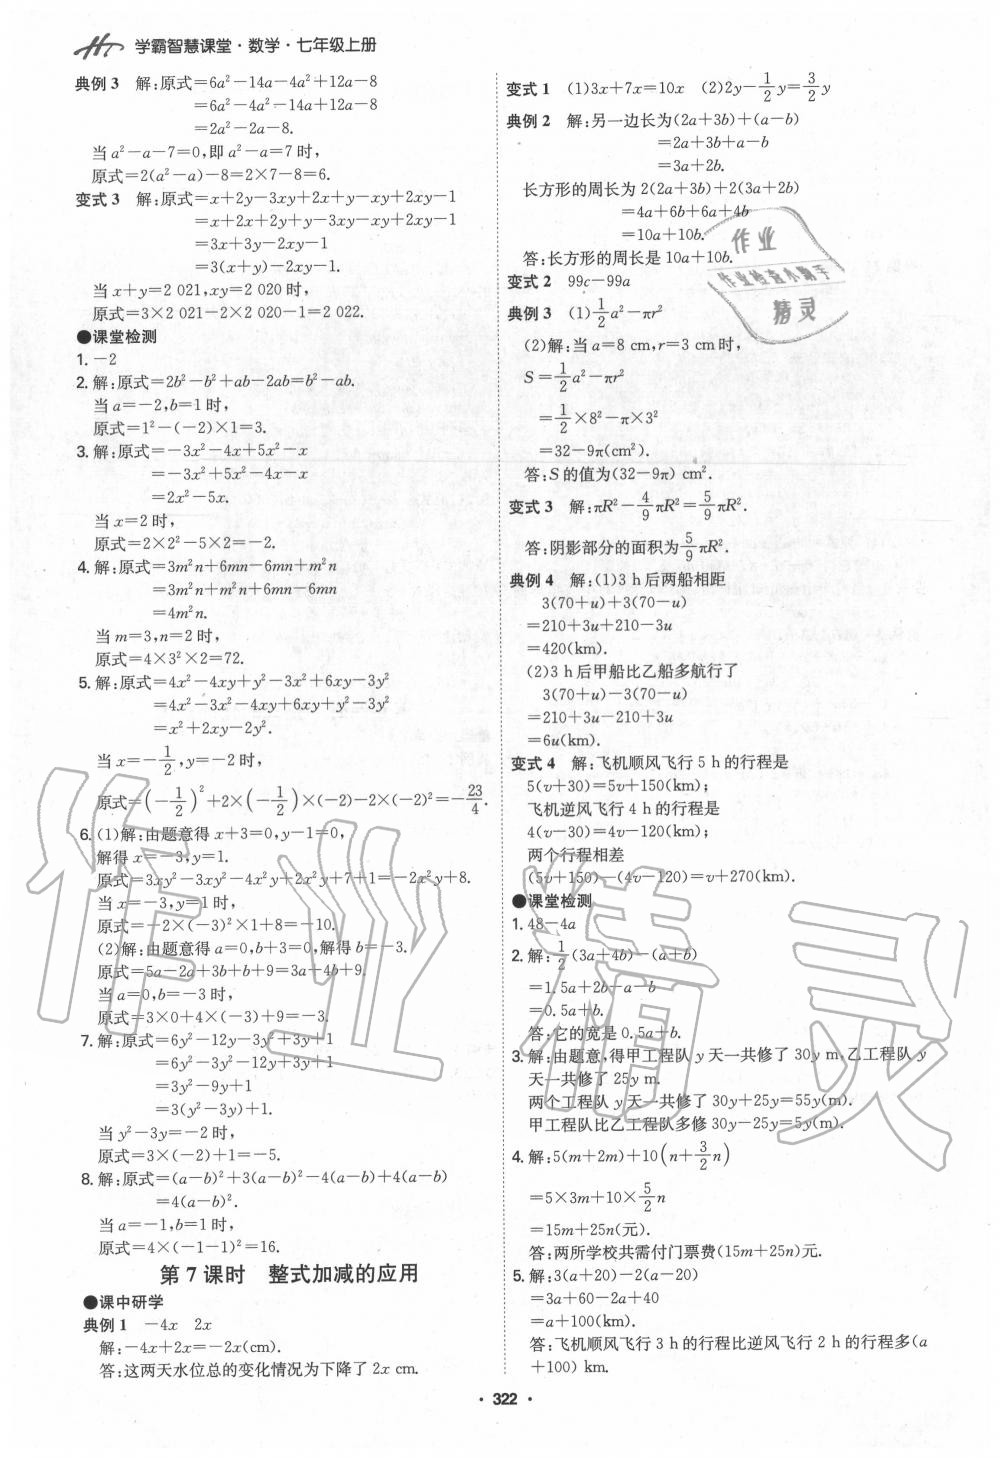 学霸智慧课堂·数学·七年级上册
典例 3 解:原式=6a²-14a-4a²+12a-8
=6a²-4a²-14a+12a-8
=2a²-2a-8.
当 a²-a-7=0,即 a²-a=7 时,
原式=2(a²-a)-8=2×7-8=6.
变式 3 解:原式=x+2y-3xy+2x+y-xy+2xy-1
=x+2x+2y+y-3xy-xy+2xy-1
=3x+3y-2xy-1
=3(x+y)-2xy-1
当 x+y=2 021,xy=2 020 时,
原式=3×2 021-2×2 020-1=2 022.
●课堂检测
1. -2
2. 解:原式=2b²-b²+ab-2ab=b²-ab.
当 a=-2,b=1 时,
原式=1²-(-2)×1=3.
3. 解:原式=-3x²-4x+5x²-x
=-3x²+5x²-4x-x
=2x²-5x.
当 x=2 时,
原式=2×2²-5×2=-2.
4. 解:原式=3m²n+6mn-6mn+m²n
=3m²n+m²n+6mn-6mn
=4m²n.
当 m=3,n=2 时,
原式=4×3²×2=72.
5. 解:原式=4x²-4xy+y²-3x²+6xy-3y²
=4x²-3x²-4xy+6xy+y²-3y²
=x²+2xy-2y².
当 x=-1/2,y=-2 时,
原式=(-1/2)²+2×(-1/2)×(-2)-2×(-2)²=-23/4.
6. (1)解:由题意得 x+3=0,y-1=0,
解得 x=-3,y=1.
原式=3xy²-3xy²-4x²y+2x²y+7+1=-2x²y+8.
当 x=-3,y=1 时,
原式=-2×(-3)²×1+8=-10.
(2)解:由题意得 a=0,b+3=0,解得 b=-3.
原式=5a-2a+3b+b+9=3a+4b+9.
当 a=0,b=-3 时,
原式=3×0+4×(-3)+9=-3.
7. 解:原式=6y²-12y-3y²+3y+1
=6y²-3y²-12y+3y+1
=3y²-9y+1
=3(y²-3y)+1.
当 y²-3y=-2 时,
原式=3×(-2)+1=-5.
8. 解:原式=(a-b)²+3(a-b)²-4(a-b)+4(a-b)
=4(a-b)².
当 a=-1,b=1 时,
原式=4×(-1-1)²=16.
第 7 课时 整式加减的应用
●课中研学
典例 1 -4x 2x
解:-4x+2x=-2x(cm).
答:这两天水位总的变化情况为下降了 2x cm.
变式 1 (1)3x+7x=10x (2)2y-1/2y=3/2y
典例 2 解:另一边长为(2a+3b)+(a-b)
=2a+3b+a-b
=3a+2b.
长方形的周长为 2(2a+3b)+2(3a+2b)
=4a+6b+6a+4b
=10a+10b.
答:长方形的周长是 10a+10b.
变式 2 99c-99a
典例 3 (1)1/2a²-πr²
(2)解:当 a=8 cm,r=3 cm时,
S=1/2a²-πr²
=1/2×8²-π×3²
=32-9π(cm²).
答:S 的值为(32-9π) cm².
变式 3 解:πR²-4/9πR²=5/9πR².
答:阴影部分的面积为5/9πR².
典例 4 解:(1)3 h后两船相距
3(70+u)+3(70-u)
=210+3u+210-3u
=420(km).
(2)3 h后甲船比乙船多航行了
3(70+u)-3(70-u)
=210+3u-210+3u
=6u(km).
变式 4 解:飞机顺风飞行 5 h的行程是
5(v+30)=5v+150(km);
飞机逆风飞行 4 h的行程是
4(v-30)=4v-120(km);
两个行程相差
(5v+150)-(4v-120)=v+270(km).
●课堂检测
1. 48-4a
2. 解:1/2(3a+4b)-(a+b)
=1.5a+2b-a-b
=0.5a+b.
答:它的宽是 0.5a+b.
3. 解:由题意,得甲工程队 y 天一共修了 30y m,乙工程队 y
天一共修了 25y m.
两个工程队 y 天一共修了 30y+25y=55y(m).
甲工程队比乙工程队多修 30y-25y=5y(m).
4. 解:5(m+2m)+10(n+3/2n)
=5×3m+10×5/2n
=15m+25n(元).
答:两所学校共需付门票费(15m+25n)元.
5. 解:3(a+20)-2(a-20)
=3a+60-2a+40
=a+100(km).
答:飞机顺风飞行 3 h的行程比逆风飞行 2 h的行程多(a
+100) km.
·322·
作业
作业检查小帮手
精灵
作业精灵